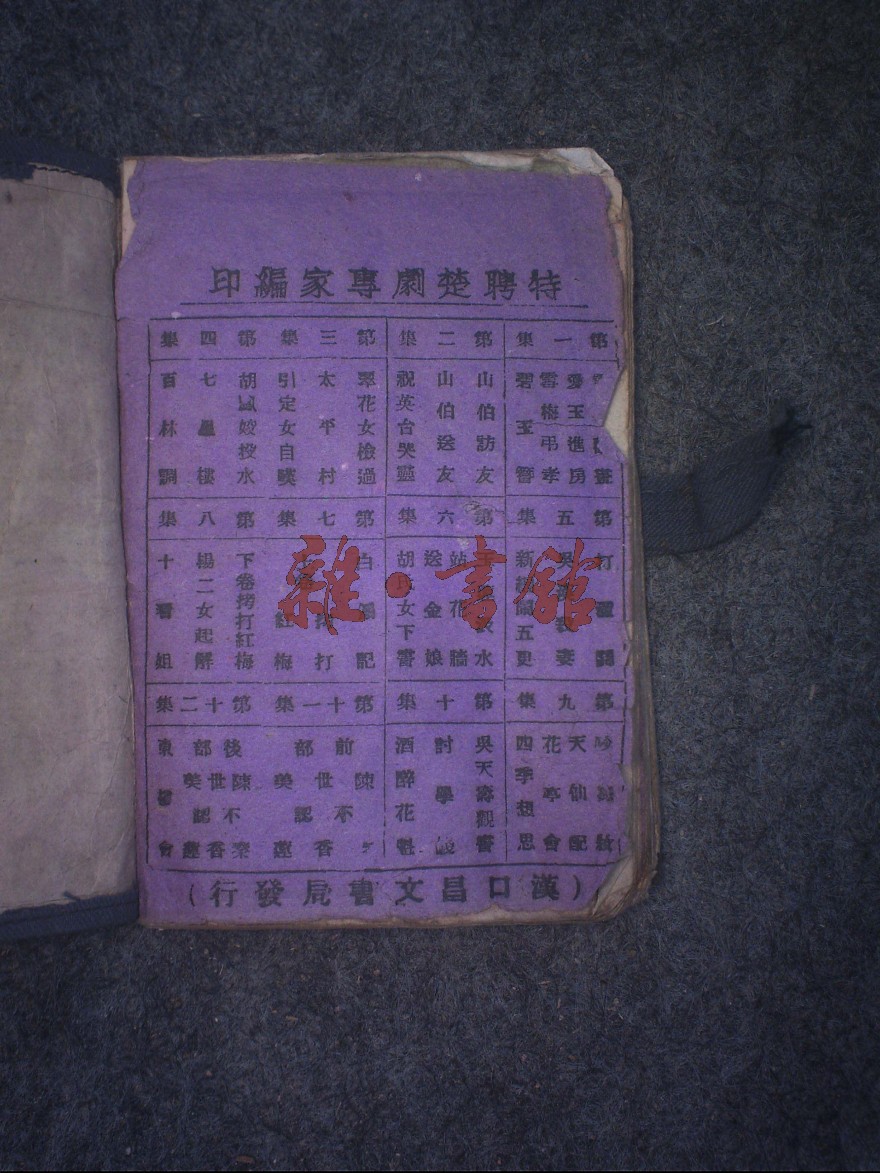 特聘楚劇專家編印
第一集
愛玉進房
雪梅弔孝
碧玉簪
第二集
山伯訪友
山伯送友
祝英台哭靈
第三集
翠花女檢過
太平村
引定女自嘆
第四集
胡鳳姣投水
七星樓
百林調
第五集
打
吳 妻
新 五更
第六集
水
站花牆
送金娘
胡氏女下書
第七集
白 記
打
紅梅
第八集
下卷拷打紅梅
楊二女起解
十看姐
第九集
天仙配
花亭會
四季想思
第十集
吳天壽觀書
討學
酒醉花魁
第十一集
前部
陳世美不認 香蓮
第十二集
後部
陳世美不認秦香蓮
東 會
(漢口昌文書局發行)
雜·書館